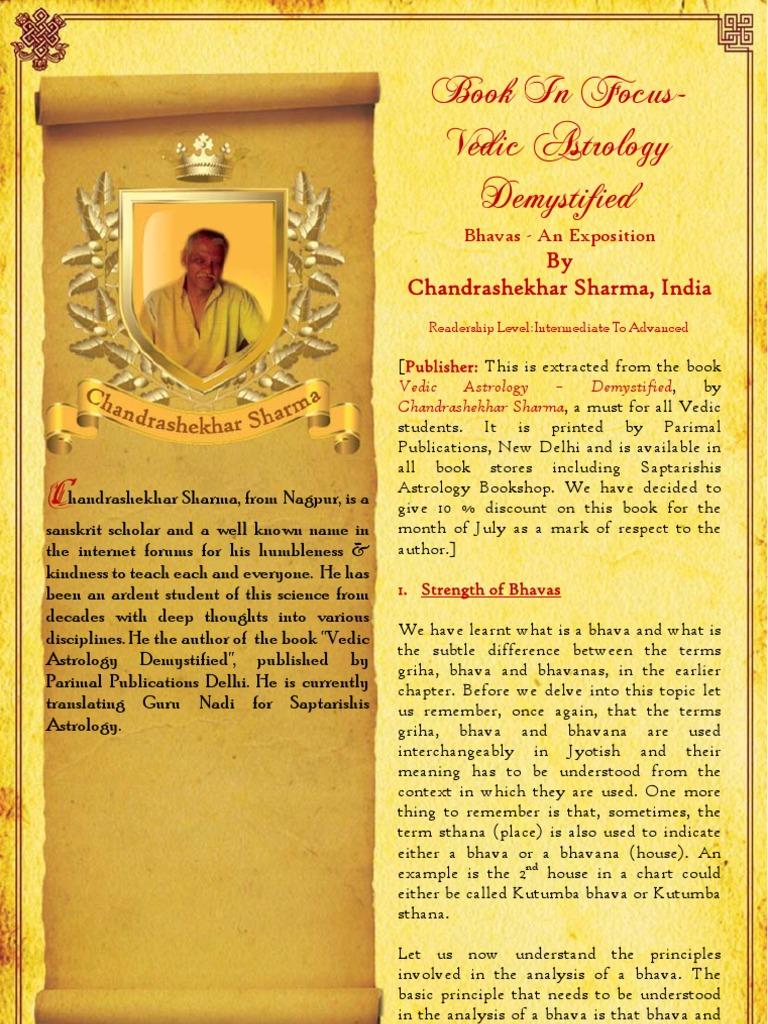 Chandrashekhar Sharma
Chandrashekhar Sharma, from Nagpur, is a
sanskrit scholar and a well known name in
the internet forums for his humbleness &
kindness to teach each and everyone. He has
been an ardent student of this science from
decades with deep thoughts into various
disciplines. He the author of the book "Vedic
Astrology Demystified", published by
Parimal Publications Delhi. He is currently
translating Guru Nadi for Saptarishis
Astrology.
Book In Focus-
Vedic Astrology
Demystified
Bhavas - An Exposition
By
Chandrashekhar Sharma, India
Readership Level: Intermediate To Advanced
[Publisher: This is extracted from the book
Vedic Astrology – Demystified, by
Chandrashekhar Sharma, a must for all Vedic
students. It is printed by Parimal
Publications, New Delhi and is available in
all book stores including Saptarishis
Astrology Bookshop. We have decided to
give 10 % discount on this book for the
month of July as a mark of respect to the
author.]
1. Strength of Bhavas
We have learnt what is a bhava and what is
the subtle difference between the terms
griha, bhava and bhavanas, in the earlier
chapter. Before we delve into this topic let
us remember, once again, that the terms
griha, bhava and bhavana are used
interchangeably in Jyotish and their
meaning has to be understood from the
context in which they are used. One more
thing to remember is that, sometimes, the
term sthana (place) is also used to indicate
either a bhava or a bhavana (house). An
example is the 2nd house in a chart could
either be called Kutumba bhava or Kutumba
sthana.
Let us now understand the principles
involved in the analysis of a bhava. The
basic principle that needs to be understood
in the analysis of a bhava is that bhava and